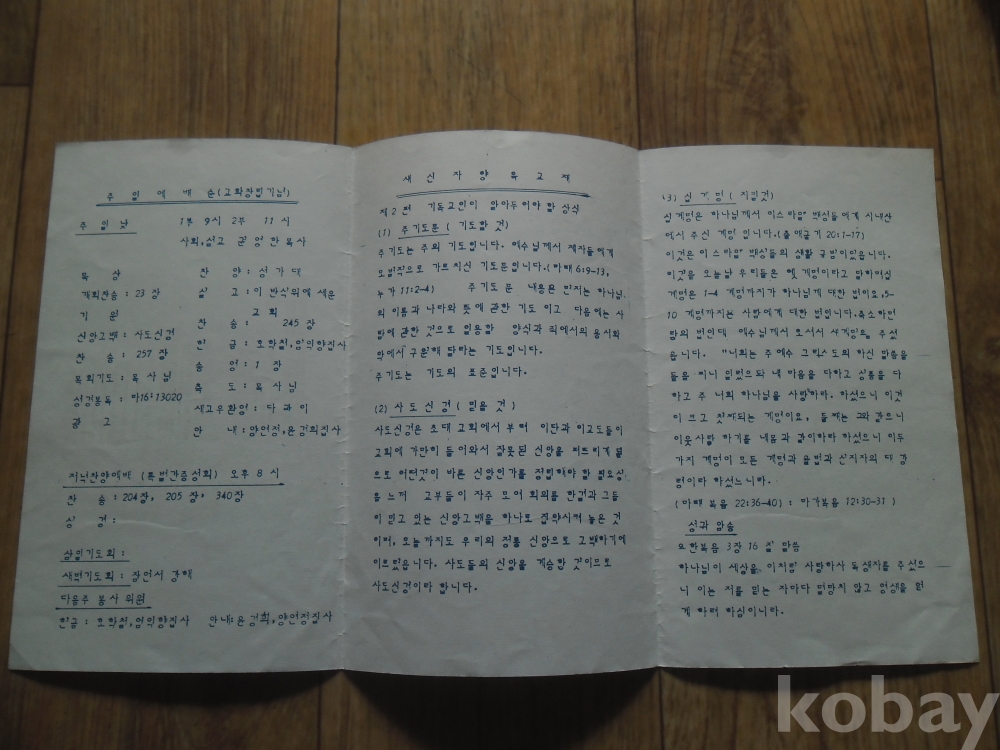 주일예배순(교회창립기념)
주일낮 1부 9시 2부 11시
사회,설교 권영한목사
묵상
개회찬송:23장
기원
신앙고백:사도신경
찬송:257장
목회기도:목사님
성경봉독:마16:13020
광고
찬양:성가대
설교:이반석위에세운
교회
찬송:245장
헌금:
송영:1장
축도:목사님
새교우환영:다같이
안내:
저녁찬양예배(특별간증성회) 오후8시
찬송:204장, 205장, 340장
성경:
삼일기도회:
새벽기도회: 잠언서 강해
다음주 봉사 위원
헌금: 안내:
새신자양육교재
제2편 기독교인이 알아두어야 할 상식
(1) 주기도문(기도할 것)
주기도는 주의 기도입니다. 예수님께서 제자들에게
모범적으로 가르치신 기도문입니다.(마태6:9-13,
누가 11:2-4) 주기도문 내용은 먼저는 하나님
의 이름과 나라와 뜻에 관한 기도이고 다음에는 사
람에 관한 것으로 일용할 양식과 죄에서의 용서와
악에서 구원해 달라는 기도입니다.
주기도는 기도의 표준입니다.
(2) 사도신경(믿을 것)
사도신경은 초대 교회에서 부터 이단과 이교도들이
교회에 가만히 들어와서 잘못된 신앙을 퍼트리게 됨
으로 어떤것이 바른 신앙인가를 정립해야 할 필요성
을 느껴 교부들이 자주 모여 회의를 한결과 그들
이 믿고 있는 신앙고백을 하나로 집약시켜 놓은 것
이며, 오늘까지도 우리의 정통 신앙으로 고백하기에
이르렀읍니다. 사도들의 신앙을 계승한 것이므로
사도신경이라 합니다.
(3) 십계명(지킬것)
십계명은 하나님께서 이스라엘 백성들에게 시내산
에서 주신 계명입니다.(출애굽기 20:1-17)
이것은 이스라엘 백성들의 생활 규범이었읍니다.
이것을 오늘날 우리들은 옛 계명이라고 말하며십
계명은 1-4 계명까지가 하나님께 대한 법이요,5-
10 계명까지는 사람에게 대한 법입니다.축소하면
사랑의 법인데 예수님께서 오셔서 새계명을 주셨
읍니다. "너희는 주예수 그리스도의 하신 말씀을
들을 찌니 일렀으되 네 마음을 다하고 성품을 다
하고 주 너희 하나님을 사랑하라. 하셨으니 이것
이 크고 첫째되는 계명이요, 둘째는 그와같으니
이웃사랑 하기를 내몸과 같이하라 하셨으니 이두
가지 계명이 모든 계명과 율법과 선지자의 대강
령이라 하셨느니라.
(마태복음 22:36-40): 마가복음 12:30-31)
성과 암송
요한복음 3장 16절 말씀
하나님이 세상을 이처럼 사랑하사 독생자를 주셨으
니 이는 저를 믿는 자마다 멸망치 않고 영생을 얻
게 하려 하심이니라.
kobay